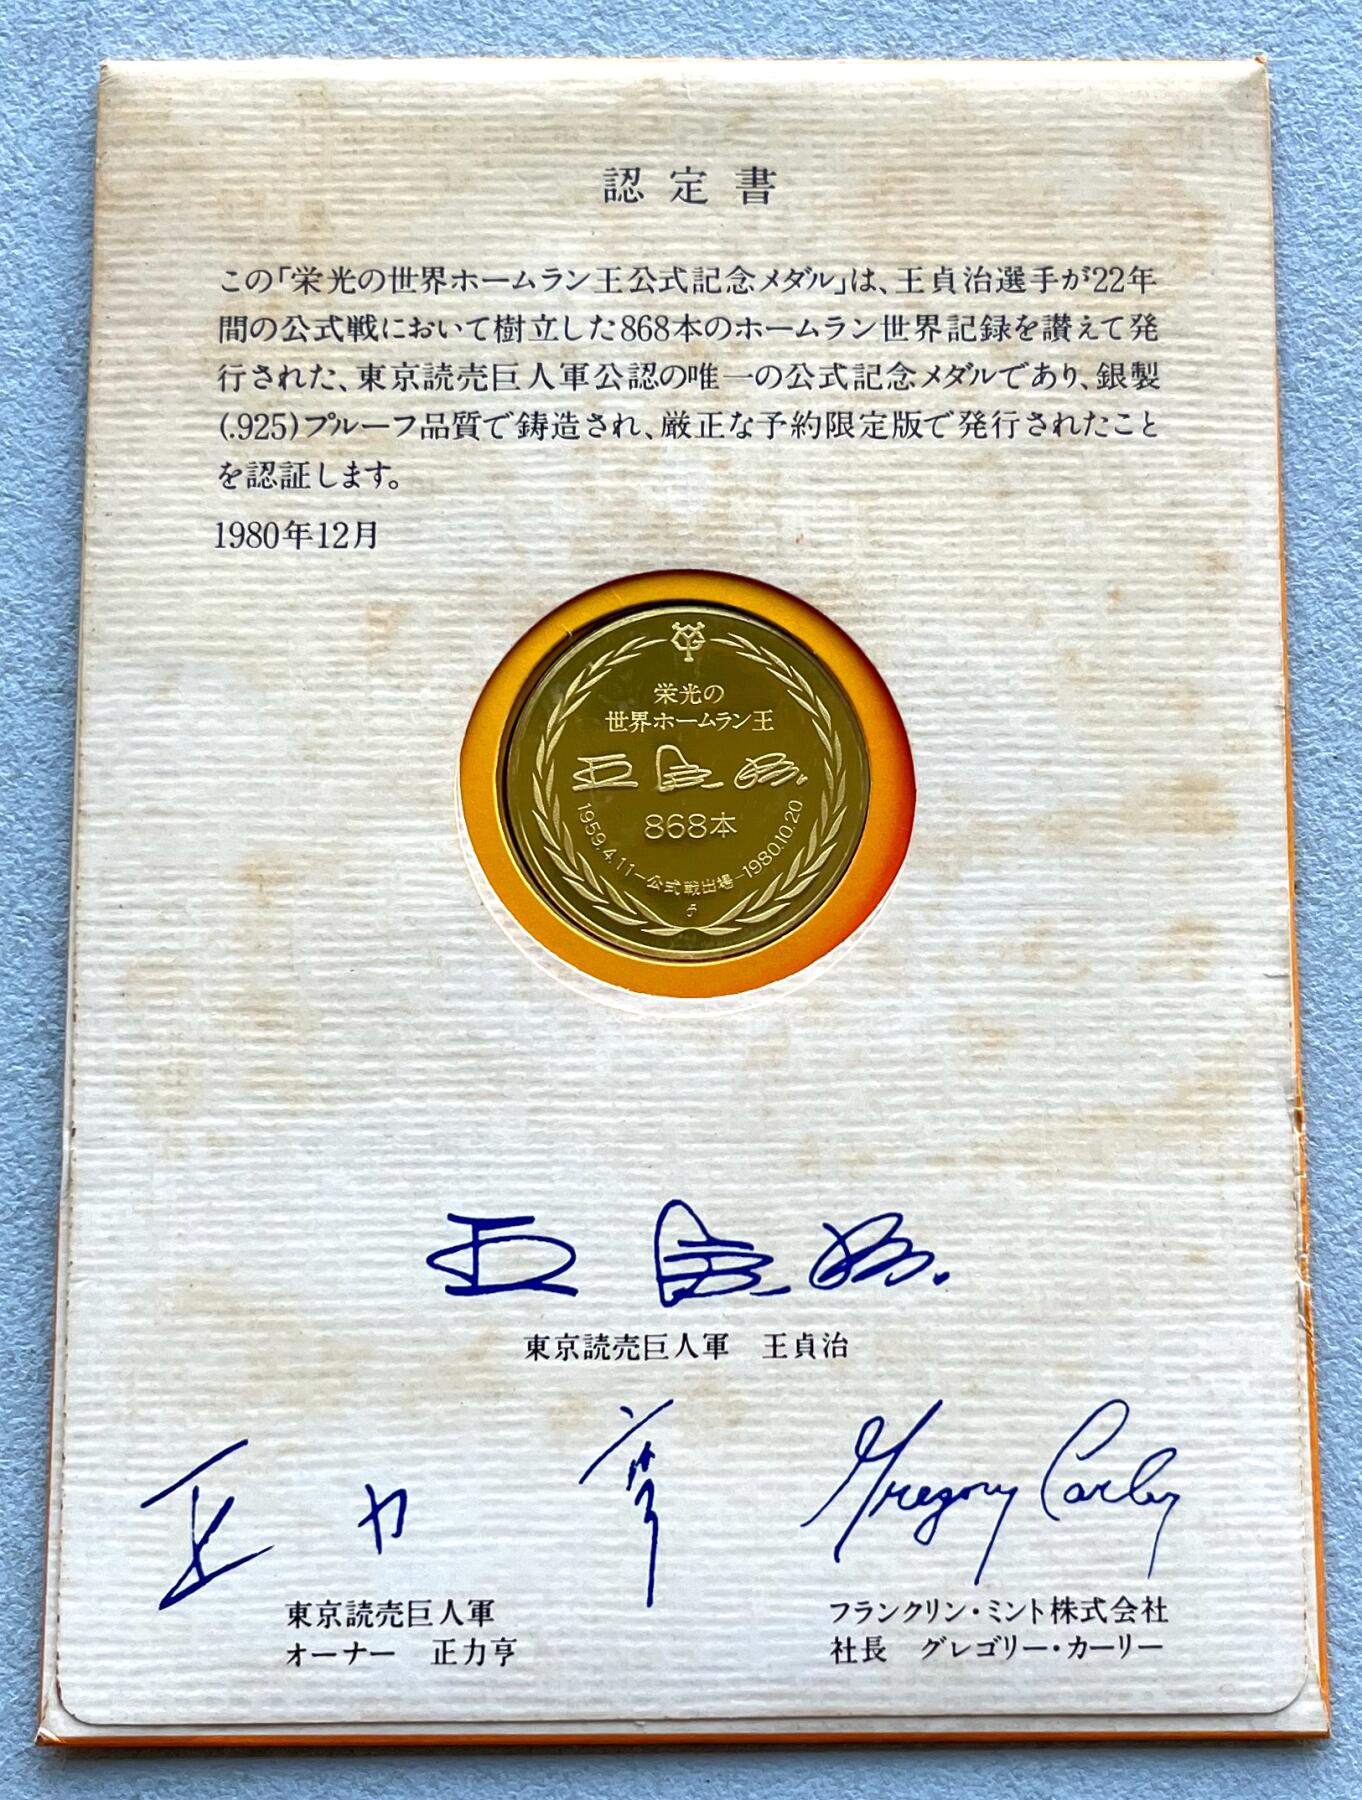 認定書
この「栄光の世界ホームラン王公式記念メダル」は、王貞治選手が22年
間の公式戦において樹立した868本のホームラン世界記録を讃えて発
行された、東京読売巨人軍公認の唯一の公式記念メダルであり、銀製
(.925)プルーフ品質で鋳造され、厳正な予約限定版で発行されたこと
を認証します。
1980年12月
栄光の
世界ホームラン王
王貞治
868本
1959.4.11−公式戦出場−1980.10.20
王貞治
東京読売巨人軍 王貞治
正力亨
Gregory Carley
東京読売巨人軍
オーナー 正力亨
フランクリン・ミント株式会社
社長 グレゴリー・カーリー